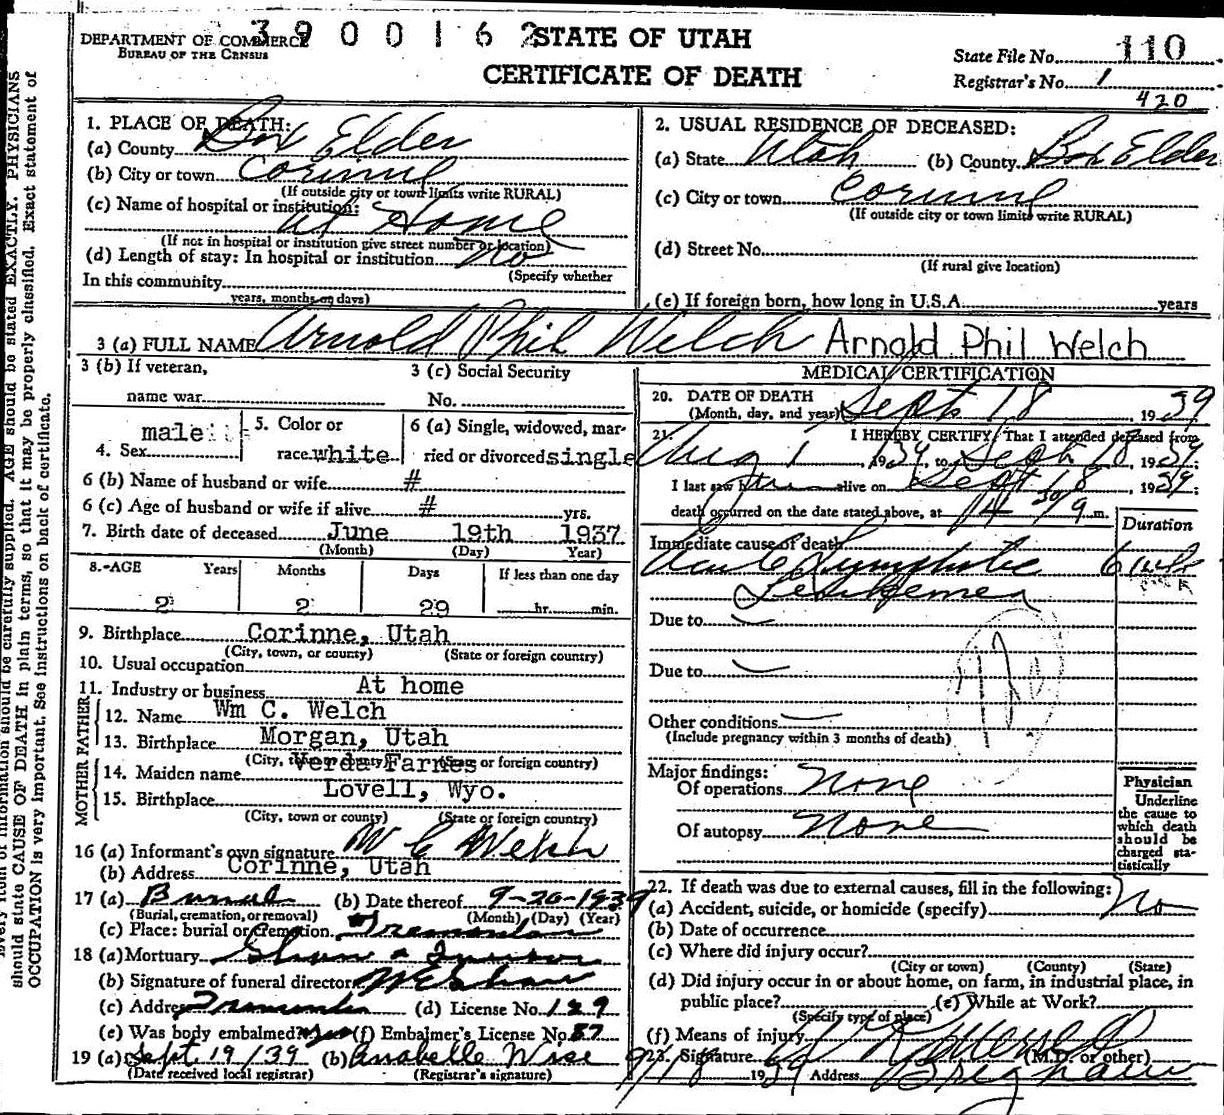 3900162
DEPARTMENT OF COMMERCE
BUREAU OF THE CENSUS
STATE OF UTAH
CERTIFICATE OF DEATH
State File No. 110
Registrar's No. 1
420
1. PLACE OF DEATH:
(a) County Box Elder
(b) City or town Corinne
(If outside city or town limits write RURAL)
(c) Name of hospital or institution:
at Home
(If not in hospital or institution give street number or location)
(d) Length of stay: In hospital or institution no
(Specify whether
In this community
years, months or days)
2. USUAL RESIDENCE OF DECEASED:
(a) State Utah (b) County Box Elder
(c) City or town Corinne
(If outside city or town limits write RURAL)
(d) Street No.
(If rural give location)
(e) If foreign born, how long in U.S.A. years
3 (a) FULL NAME Arnold Phil Welch Arnold Phil Welch
3 (b) If veteran,
name war
3 (c) Social Security
No.
4. Sex male
5. Color or
race white
6 (a) Single, widowed, mar-
ried or divorced single
6 (b) Name of husband or wife #
6 (c) Age of husband or wife if alive # yrs.
7. Birth date of deceased June 19th 1937
(Month) (Day) Year)
8.-AGE Years Months Days If less than one day
2 2 29 hr. min.
9. Birthplace Corinne, Utah
(City, town, or county) (State or foreign country)
10. Usual occupation
11. Industry or business At home
FATHER
12. Name Wm C. Welch
13. Birthplace Morgan, Utah
(City, town or county) (State or foreign country)
MOTHER
14. Maiden name Verda Farnes
15. Birthplace Lovell, Wyo.
(City, town or county) (State or foreign country)
16 (a) Informant's own signature W C Welch
(b) Address Corinne, Utah
17 (a) Burial (b) Date thereof 9-20-1939
(Burial, cremation, or removal) (Month) (Day) (Year)
(c) Place: burial or Cremation Tremonton
18 (a) Mortuary Shaw &
(b) Signature of funeral director
(c) Address Tremonton (d) License No. 129
(e) Was body embalmed? yes (f) Embalmer's License No. 87
19 (a) Sept 19/39 (b) Anabelle Wise
(Date received local registrar) (Registrar's signature)
MEDICAL CERTIFICATION
20. DATE OF DEATH
(Month, day, and year) Sept 18 1939
21. I HEREBY CERTIFY, That I attended deceased from
Aug 1, 1939, to Sept 18, 1939;
I last saw him alive on Sept 18, 1939;
death occurred on the date stated above, at m.
Duration
Immediate cause of death
Acute Lymphatic 6 wks
Leukemea
Due to
Due to
Other conditions
(Include pregnancy within 3 months of death)
Major findings:
Of operations None
Of autopsy None
Physician
Underline
the cause to
which death
should be
charged sta-
tistically
22. If death was due to external causes, fill in the following:
(a) Accident, suicide, or homicide (specify) No
(b) Date of occurrence
(c) Where did injury occur?
(City or town) (County) (State)
(d) Did injury occur in or about home, on farm, in industrial place, in
public place? (e) While at Work?
(Specify type of place)
(f) Means of injury
23. Signature (M.D. or other)
9/18 1939 Address Brigham
should be carefully supplied. AGE should be stated EXACTLY. PHYSICIANS
should state CAUSE OF DEATH in plain terms, so that it may be properly classified. Exact statement of
OCCUPATION is very important. See instructions on back of certificate.